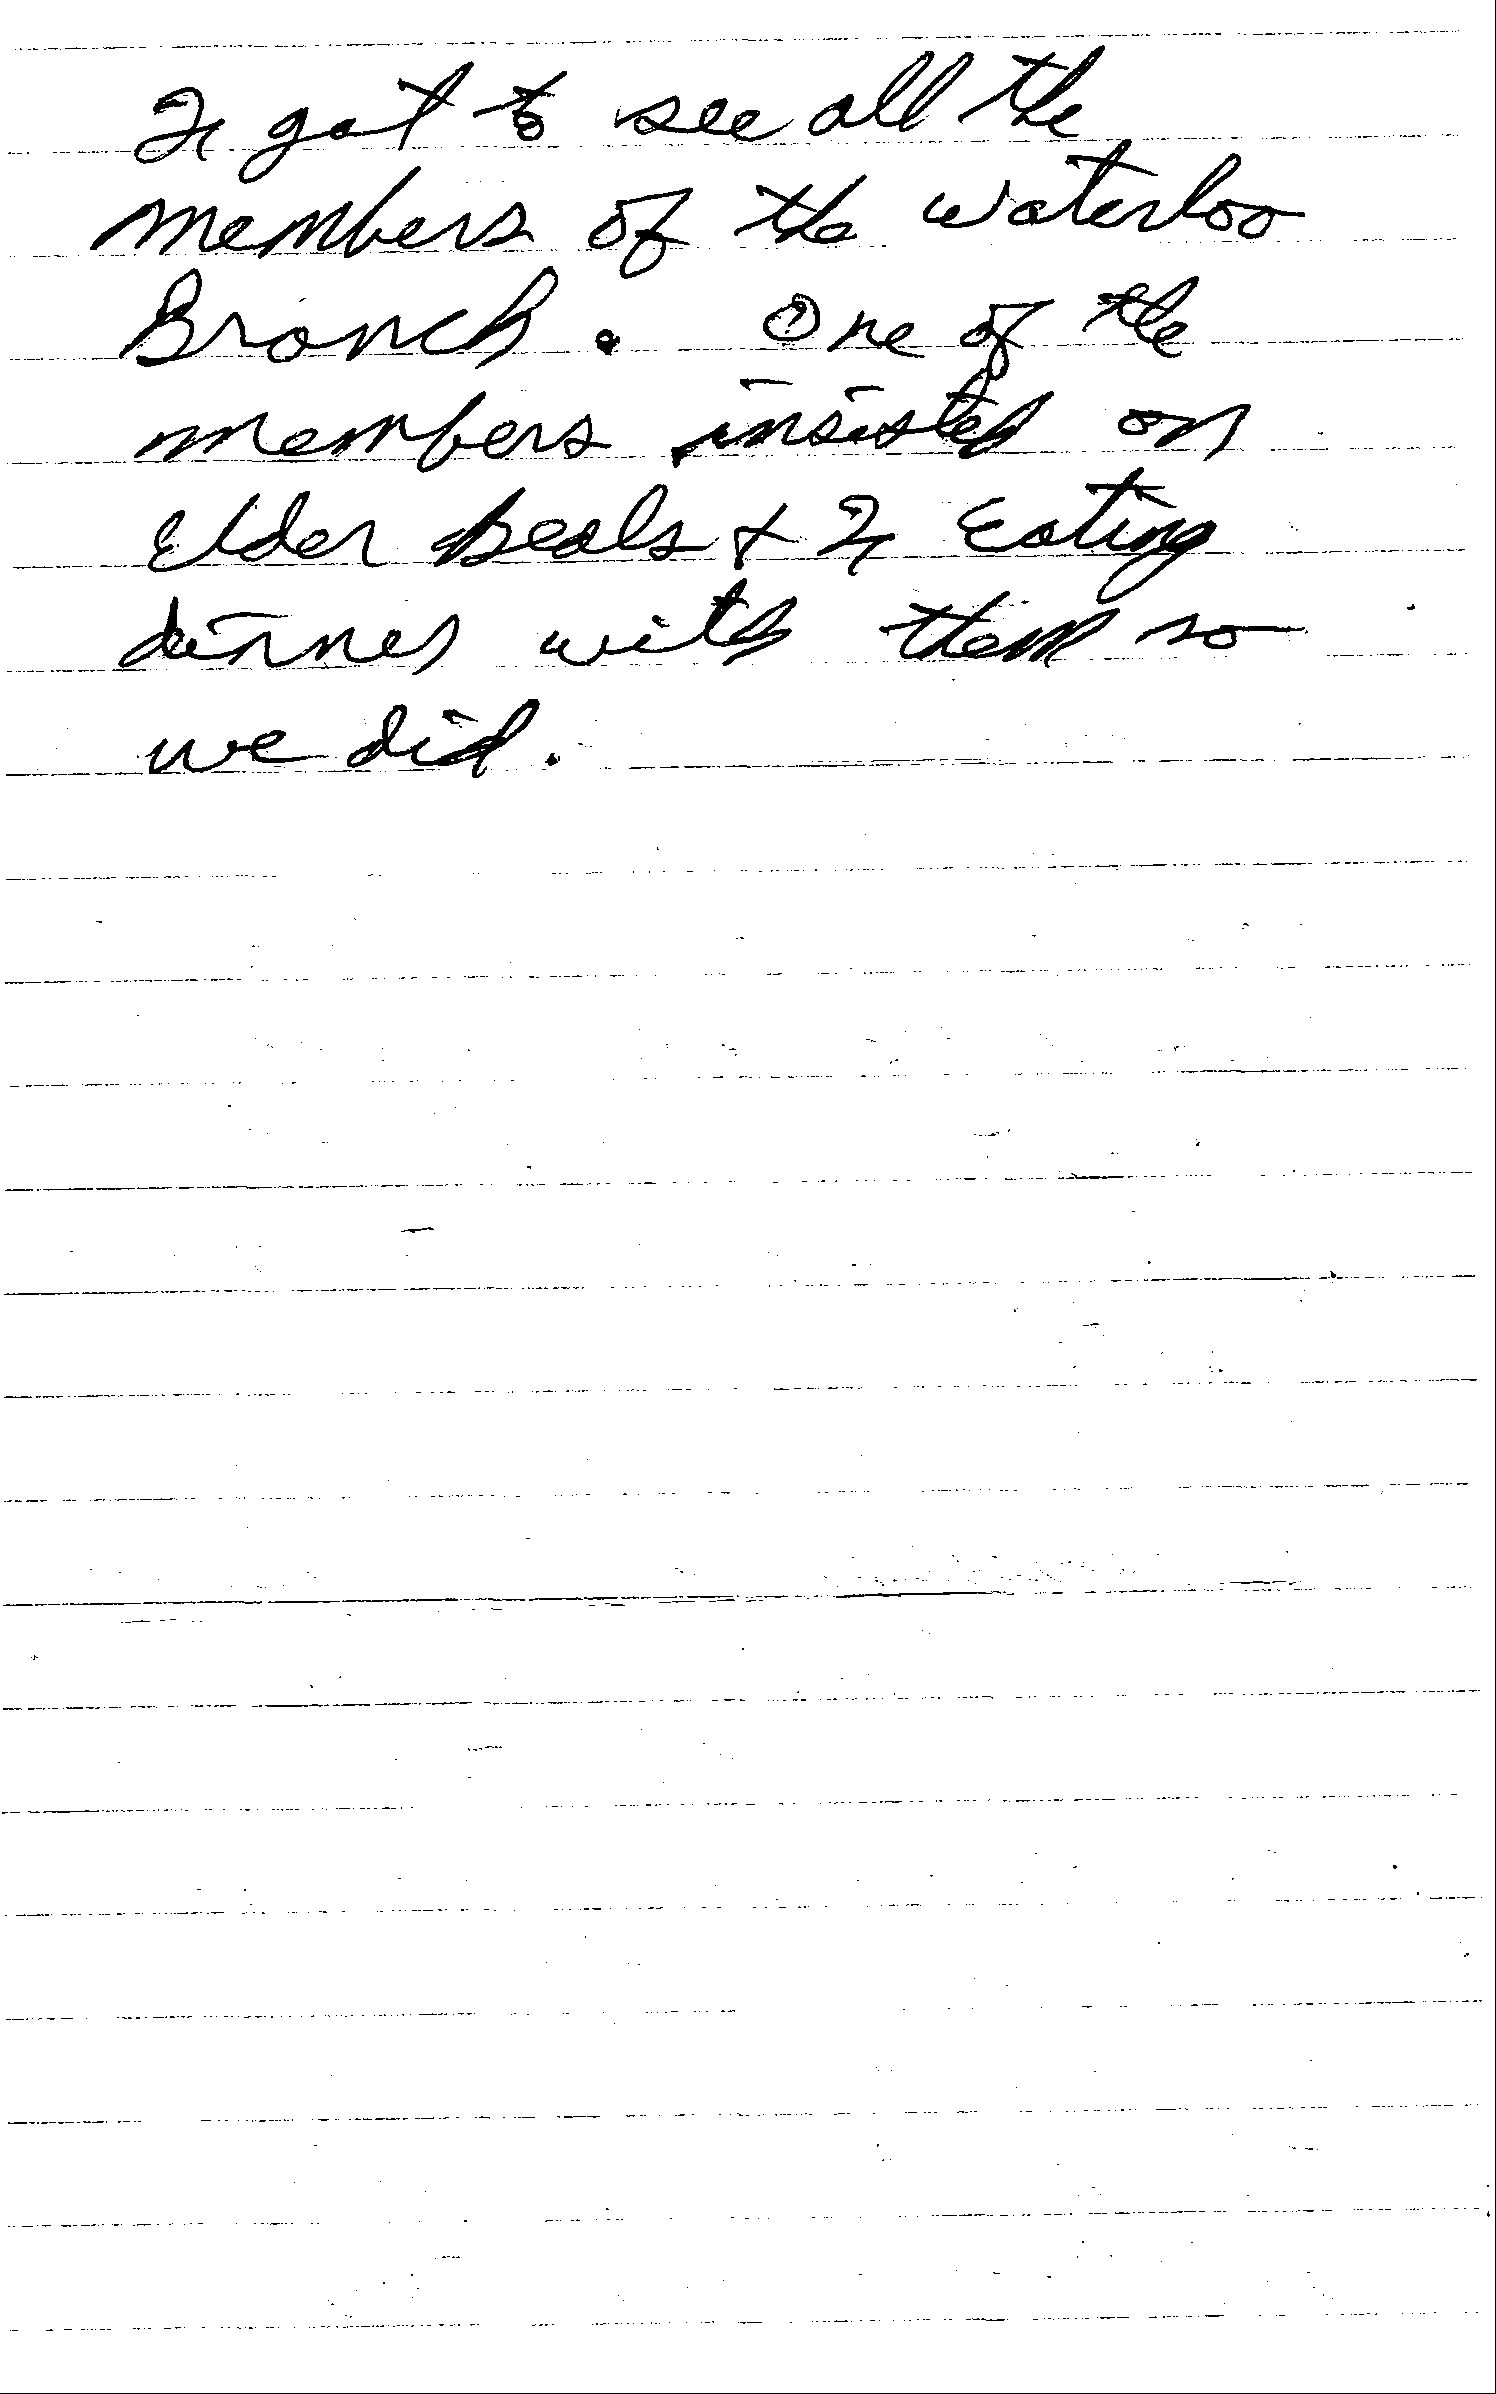 I got to see all the
members of the Waterloo
Branch. One of the
members insisted on
Elder Beals + I eating
dinner with them so
we did.